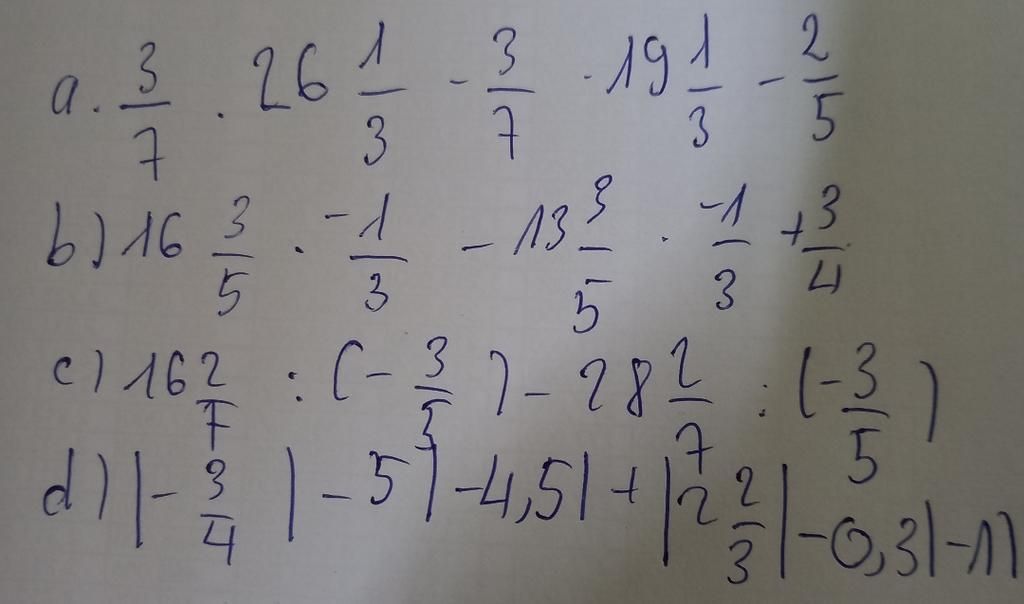 a. 3/7 . 26 1/3 - 3/7 . 19 1/3 - 2/5
b) 16 3/5 . -1/3 - 13 3/5 . -1/3 + 3/4
c) 16 2/7 : (- 3/5) - 28 2/7 : (- 3/5)
d) |- 3/4| - 5|-4,5| + |2 2/3| - 0,3|-1|